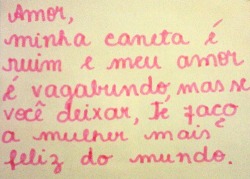 Amor,
minha caneta é
ruim e meu amor
é vagabundo, mas se
você deixar, Té faço
a mulher mais
feliz do mundo.